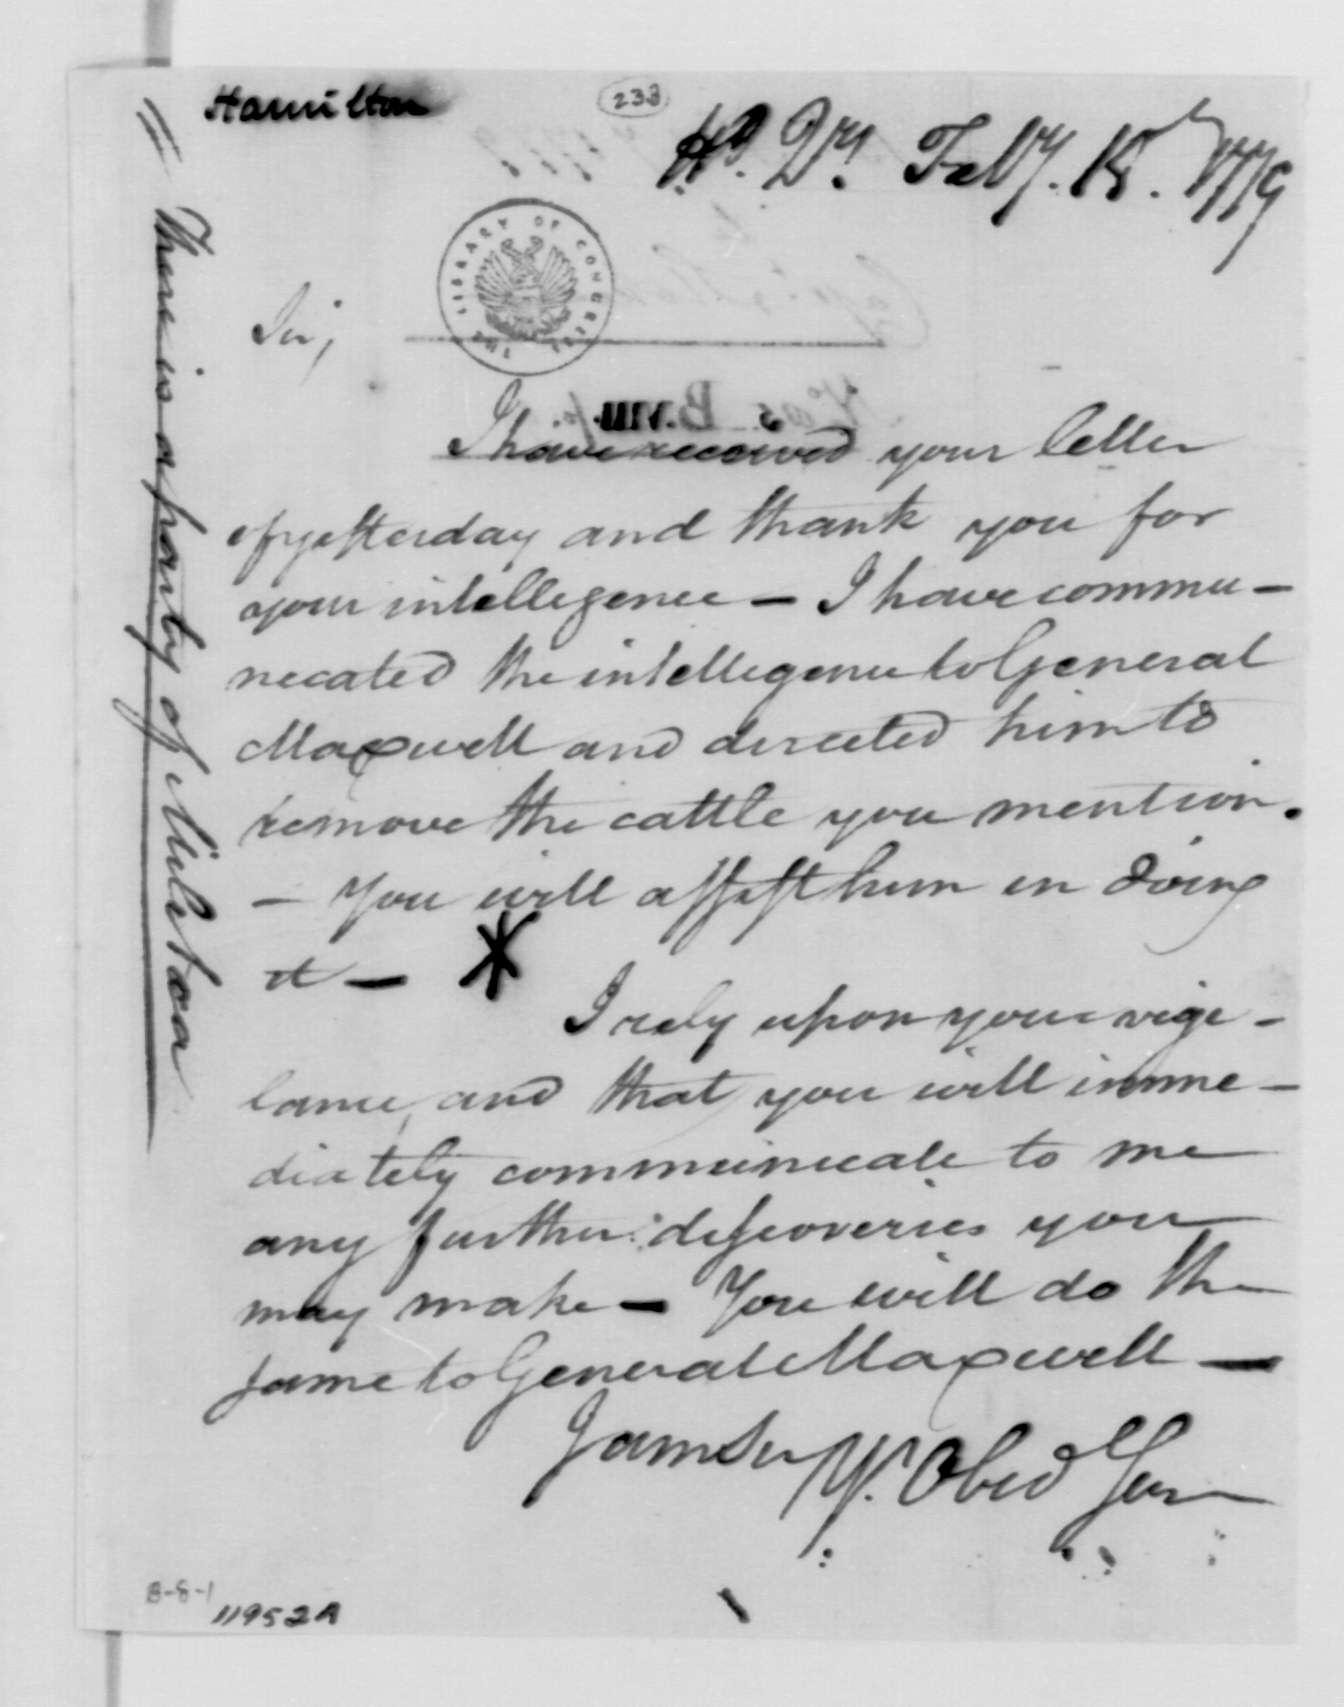 Hamilton
233
Hd. Qrs. Feby. 15. 1779
THE LIBRARY OF CONGRESS
Sir,
I have received your letter
of yesterday and thank you for
your intelligence — I have commu-
nicated the intelligence to General
Maxwell and directed him to
remove the cattle you mention.
— You will assist him in doing
it — *
I rely upon your vigi-
lance, and that you will imme-
diately communicate to me
any further discoveries you
may make — You will do the
same to General Maxwell —
I am Sir Yr. Obed Ser
There is a party of Militia
B-8-1
11952A